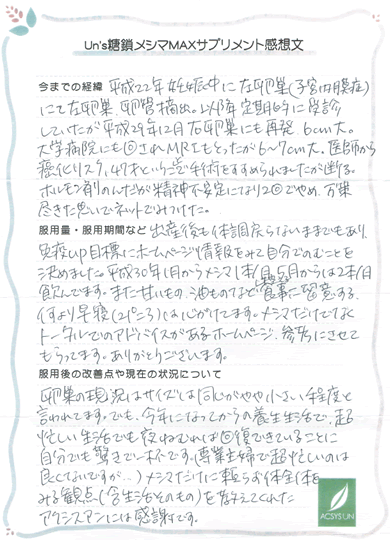 Un's糖鎖メシマMAXサプリメント感想文
今までの経緯 平成22年妊娠中に左卵巣(子宮内膜症)
にて左卵巣 卵管摘出。以降年定期的に受診
していたが平成29年12月右卵巣にも再発 6cm大。
大学病院にも回されMRIもとったが6〜7cm大。医師から
癌化リスク、47才という点で手術をすすめられましたが断る。
ホルモン剤のんだが精神不安定になり2回でやめ、万策
尽きた思いでネットでみつけた。
服用量・服用期間など 出産後も体調戻らないままでもあり、
免疫up目標にホームページ情報をみて自分でのむことを
決めました。平成30年1月からメシマ1本/日、5月からは2本/日
飲んでます。また甘いもの、油ものなど食事に留意する。
何より早寝(21ごろ)は心がけてます。メシマだけでなく
トータルでのアドバイスがあるホームページ、参考にさせて
もらってます。ありがとうございます。
服用後の改善点や現在の状況について
卵巣の現況はサイズは同じかやや小さい程度と
言われてます。でも、今年になってからの養生生活で、超
忙しい生活でも夜ねむれば回復できていることに
自分でも驚きで一杯です。(専業主婦で超忙しいのは
良くないですが…)メシマだけに頼らず体全体を
みる観点(含生活そのもの)を教えてくれた
アクシスアンには感謝です。
ACSYS UN